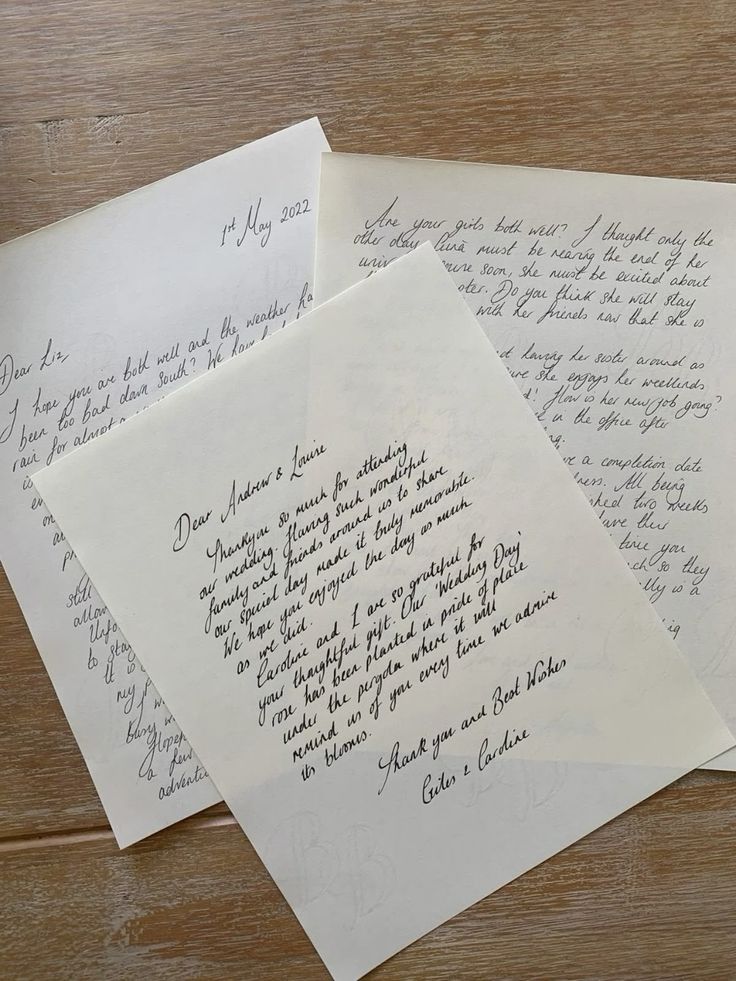 1st May 2022
Dear Liz,
I hope you are both well and the weather ha
been too bad down south? We have had
rain for almost a
still
allow
Unfo
to stay
it is
my f
I w
busy w
Hopef
a few
adventu
Are your girls both well? I thought only the
other day Luna must be nearing the end of her
univ course soon, she must be excited about
Do you think she will stay
with her friends now that she is
having her sister around as
she enjoys her weekends
How is her new job going?
in the office after
a completion date
All being
two weeks
have their
time you
so they
is a
Dear Andrew & Louise
Thankyou so much for attending
our wedding. Having such wonderful
family and friends around us to share
our special day made it truly memorable.
We hope you enjoyed the day as much
as we did.
Caroline and I are so grateful for
your thoughtful gift. Our 'Wedding Day'
rose has been planted in pride of place
under the pergola where it will
remind us of you every time we admire
its blooms.
Thank you and Best Wishes
Giles & Caroline